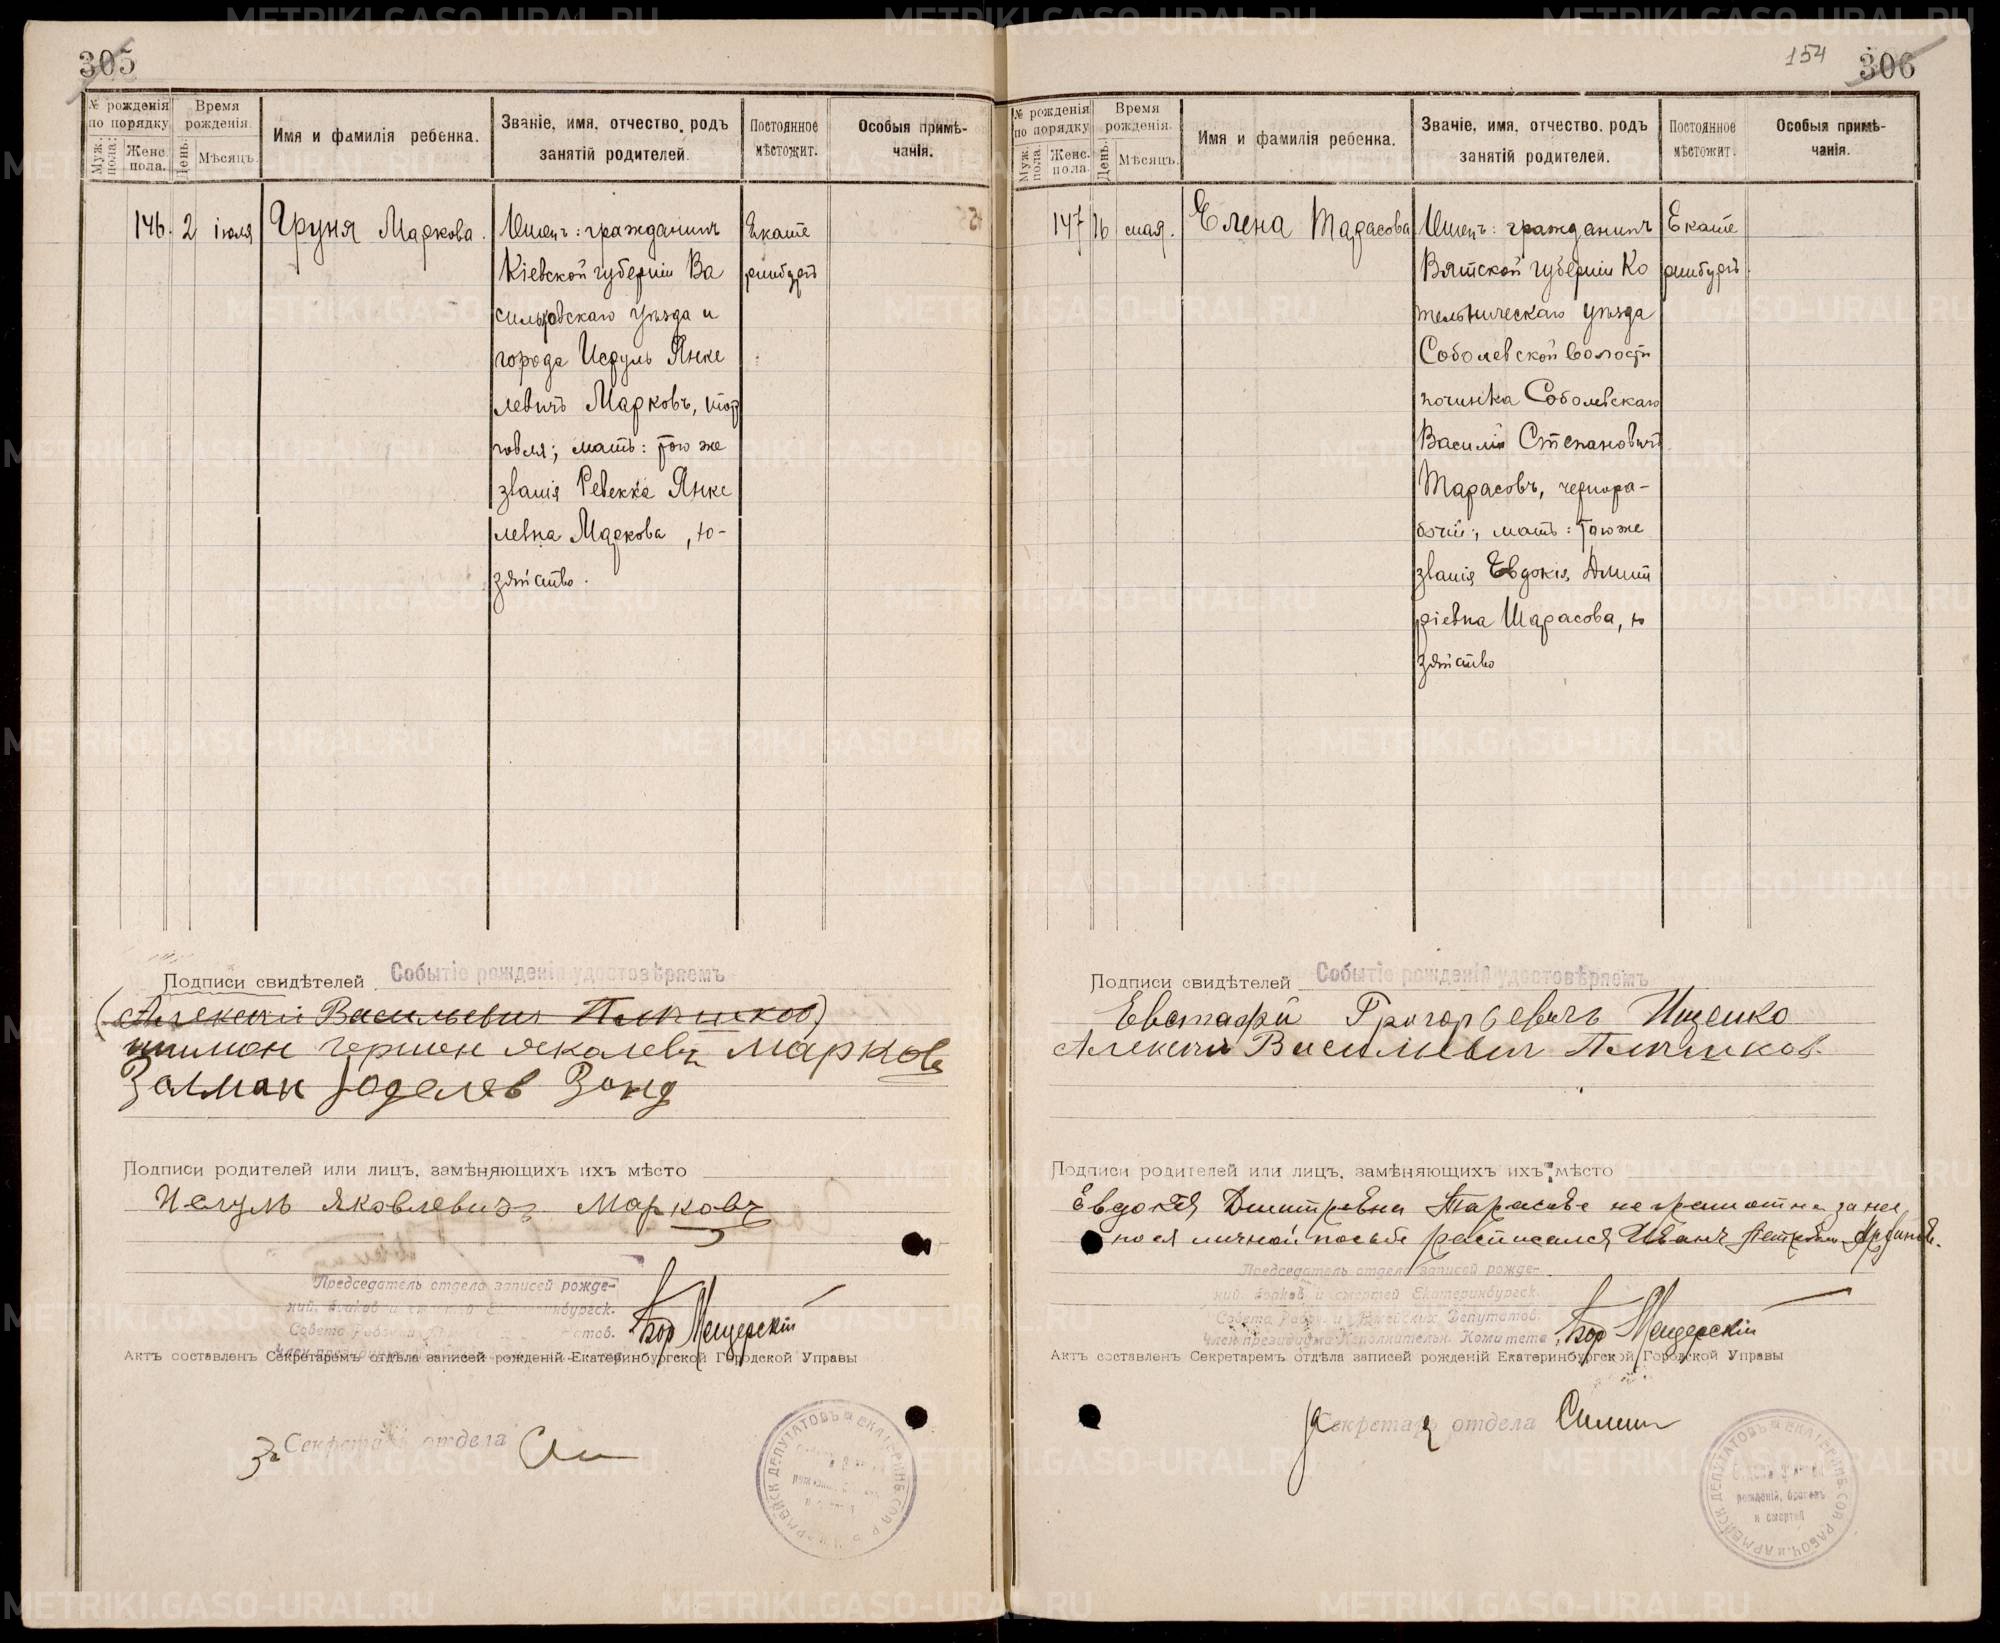 305
№ рожденія по порядку
Муж. пола.
Женс. пола.
Время рожденія.
День.
Мѣсяцъ.
Имя и фамилія ребенка.
Званіе, имя, отчество, родъ занятій родителей.
Постоянное мѣстожит.
Особыя примѣчанія.
146. 2 іюля Груня Маркова.
Отецъ: гражданинъ
Кіевской губерніи Ва
сильковскаго уѣзда и
города Исруль Янке
левичъ Марковъ, тор
говля; мать: того же
званія Ревекка Янке
левна Маркова, хо-
зяйство.
Екате
ринбургъ
Подписи свидѣтелей Событіе рожденія удостовѣряемъ
Алексей Васильевич
Яковлевъ Марков
Залман Зонд
Подписи родителей или лицъ, замѣняющихъ ихъ мѣсто
Исруль Яковлевичъ Марковъ
Председатель отдела записей рожде-
Мещерскій
Актъ составленъ Секретаремъ отдѣла записей рожденій Екатеринбургской Городской Управы
Секретарь отдела
154 306
№ рожденія по порядку
Муж. пола.
Женс. пола.
Время рожденія.
День.
Мѣсяцъ.
Имя и фамилія ребенка.
Званіе, имя, отчество, родъ занятій родителей.
Постоянное мѣстожит.
Особыя примѣчанія.
147 16 мая. Елена Тарасова
Отецъ: гражданинъ
Вятской губерніи Ко
тельническаго уѣзда
Соболевской волости
починка Соболевскаго
Василій Степановичъ
Тарасовъ, чернора-
бочій; мать: того же
званія Евдокія Дмит
ріевна Тарасова, хо
зяйство
Екате
ринбургъ.
Подписи свидѣтелей Событіе рожденій удостовѣряемъ
Евстафій Григорьевичъ Ищенко
Алексей Васильевич
Подписи родителей или лицъ, замѣняющихъ ихъ мѣсто
Евдокія Дмитревна Тарасова не грамотна за нее
по ея личной просьбе расписался Иванъ
Председатель отдела записей рожде-
ний, браков и смертей Екатеринбургск.
Совета Рабоч. и Армейских Депутатов.
Член президиума Исполнительн. Комитета
Мещерскій
Актъ составленъ Секретаремъ отдѣла записей рожденій Екатеринбургской Городской Управы
за Секретаря отдела
рожденій, браковъ
и смертей
METRIKI.GASO-URAL.RU